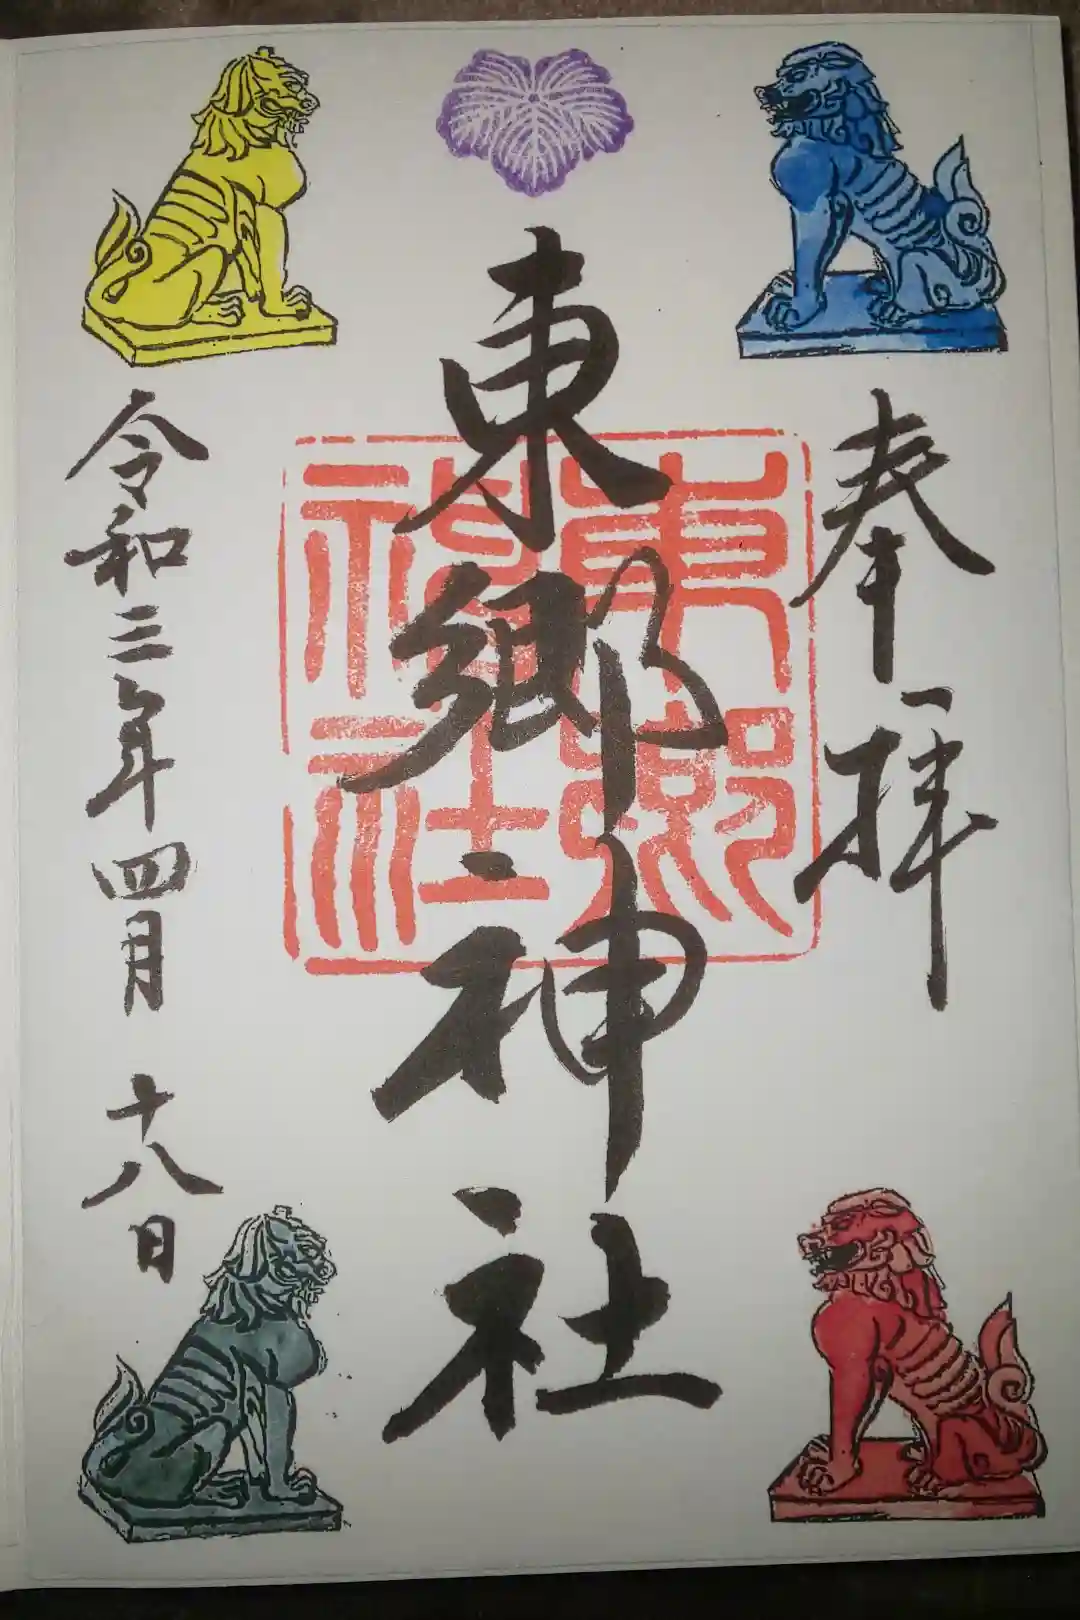 奉拝
東郷神社
東郷
神社
令和三年四月十八日